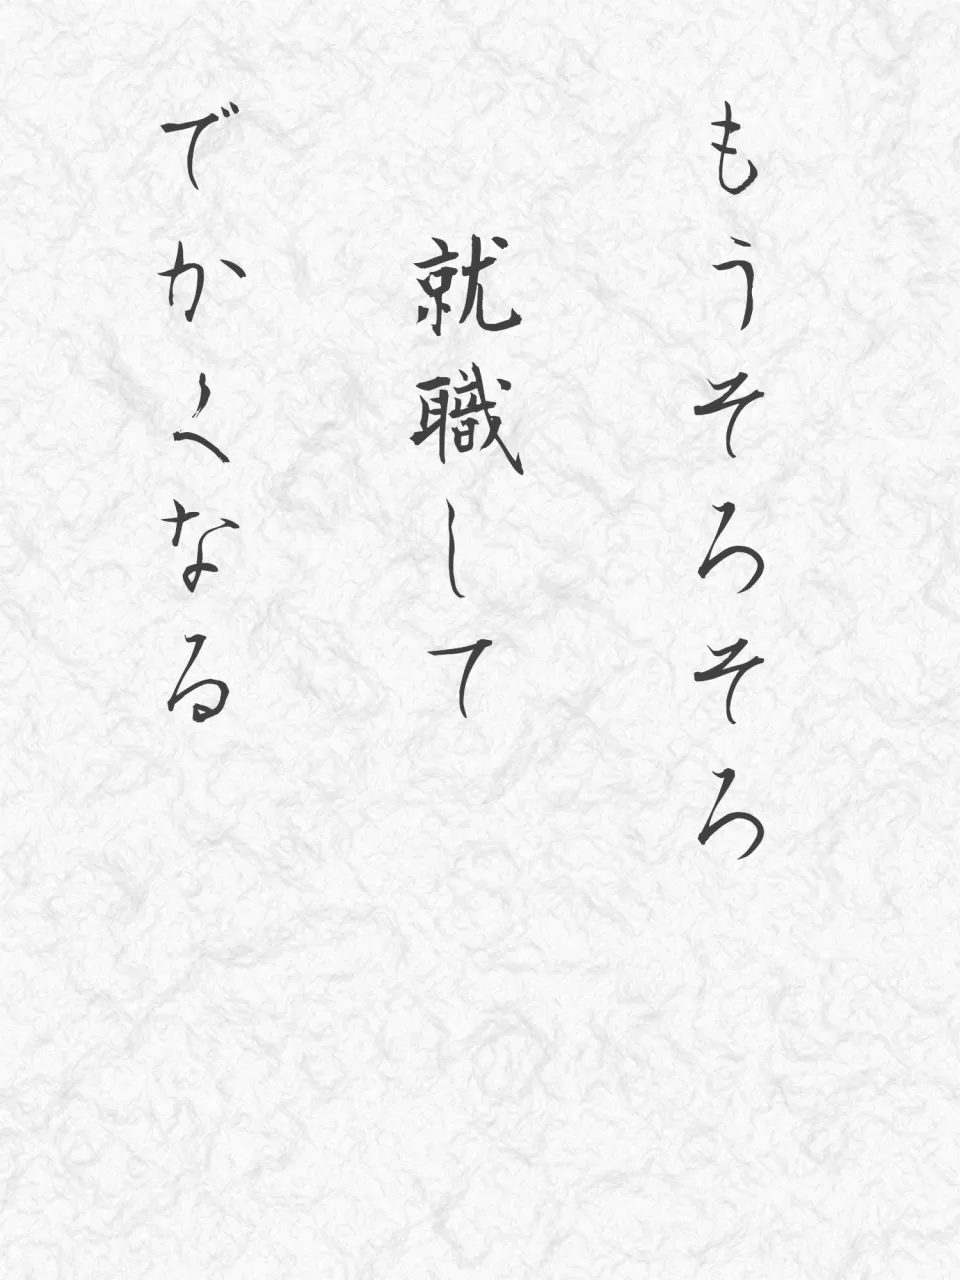 もうそろそろ
就職して
でかくなる